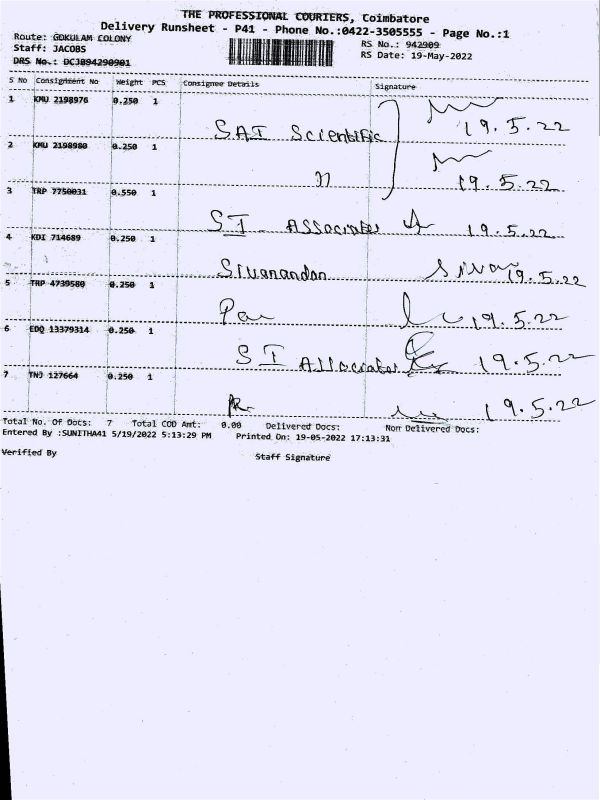 THE PROFESSIONAL COURIERS, Coimbatore
Delivery Runsheet - P41 - Phone No.:0422-3505555 - Page No.:1
Route: GOKULAM COLONY
RS No.: 942909
Staff: JACOBS
RS Date: 19-May-2022
DRS No.: DCJB94290901
S No Consignment No Weight PCS Consignee Details Signature
1 KMU 2198976 0.250 1
SAI Scientific 19.5.22
2 KMU 2198980 0.250 1
19.5.22
3 TRP 7750031 0.550 1
SI Associates 19.5.22
4 KDI 714689 0.250 1
Sivanandan Siva 19.5.22
5 TRP 4739580 0.250 1
19.5.22
6 EDQ 13379314 0.250 1
SI Associates 19.5.22
7 TNJ 127664 0.250 1
19.5.22
Total No. Of Docs: 7 Total COD Amt: 0.00 Delivered Docs: Non Delivered Docs:
Entered By :SUNITHA41 5/19/2022 5:13:29 PM Printed On: 19-05-2022 17:13:31
Verified By Staff Signature